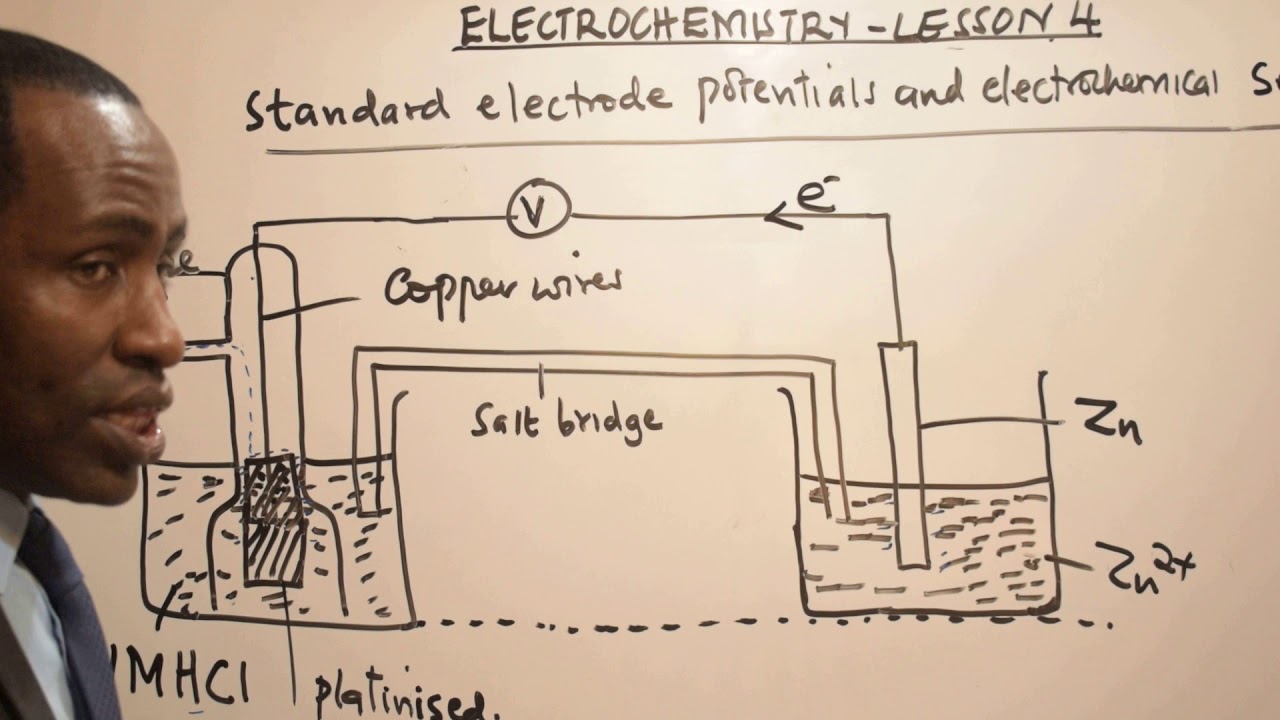 ELECTROCHEMISTRY - LESSON 4
Standard electrode potentials and electrochemical
V
e⁻
Copper wires
Salt bridge
Zn
Zn²⁺
1M HCl
platinised.